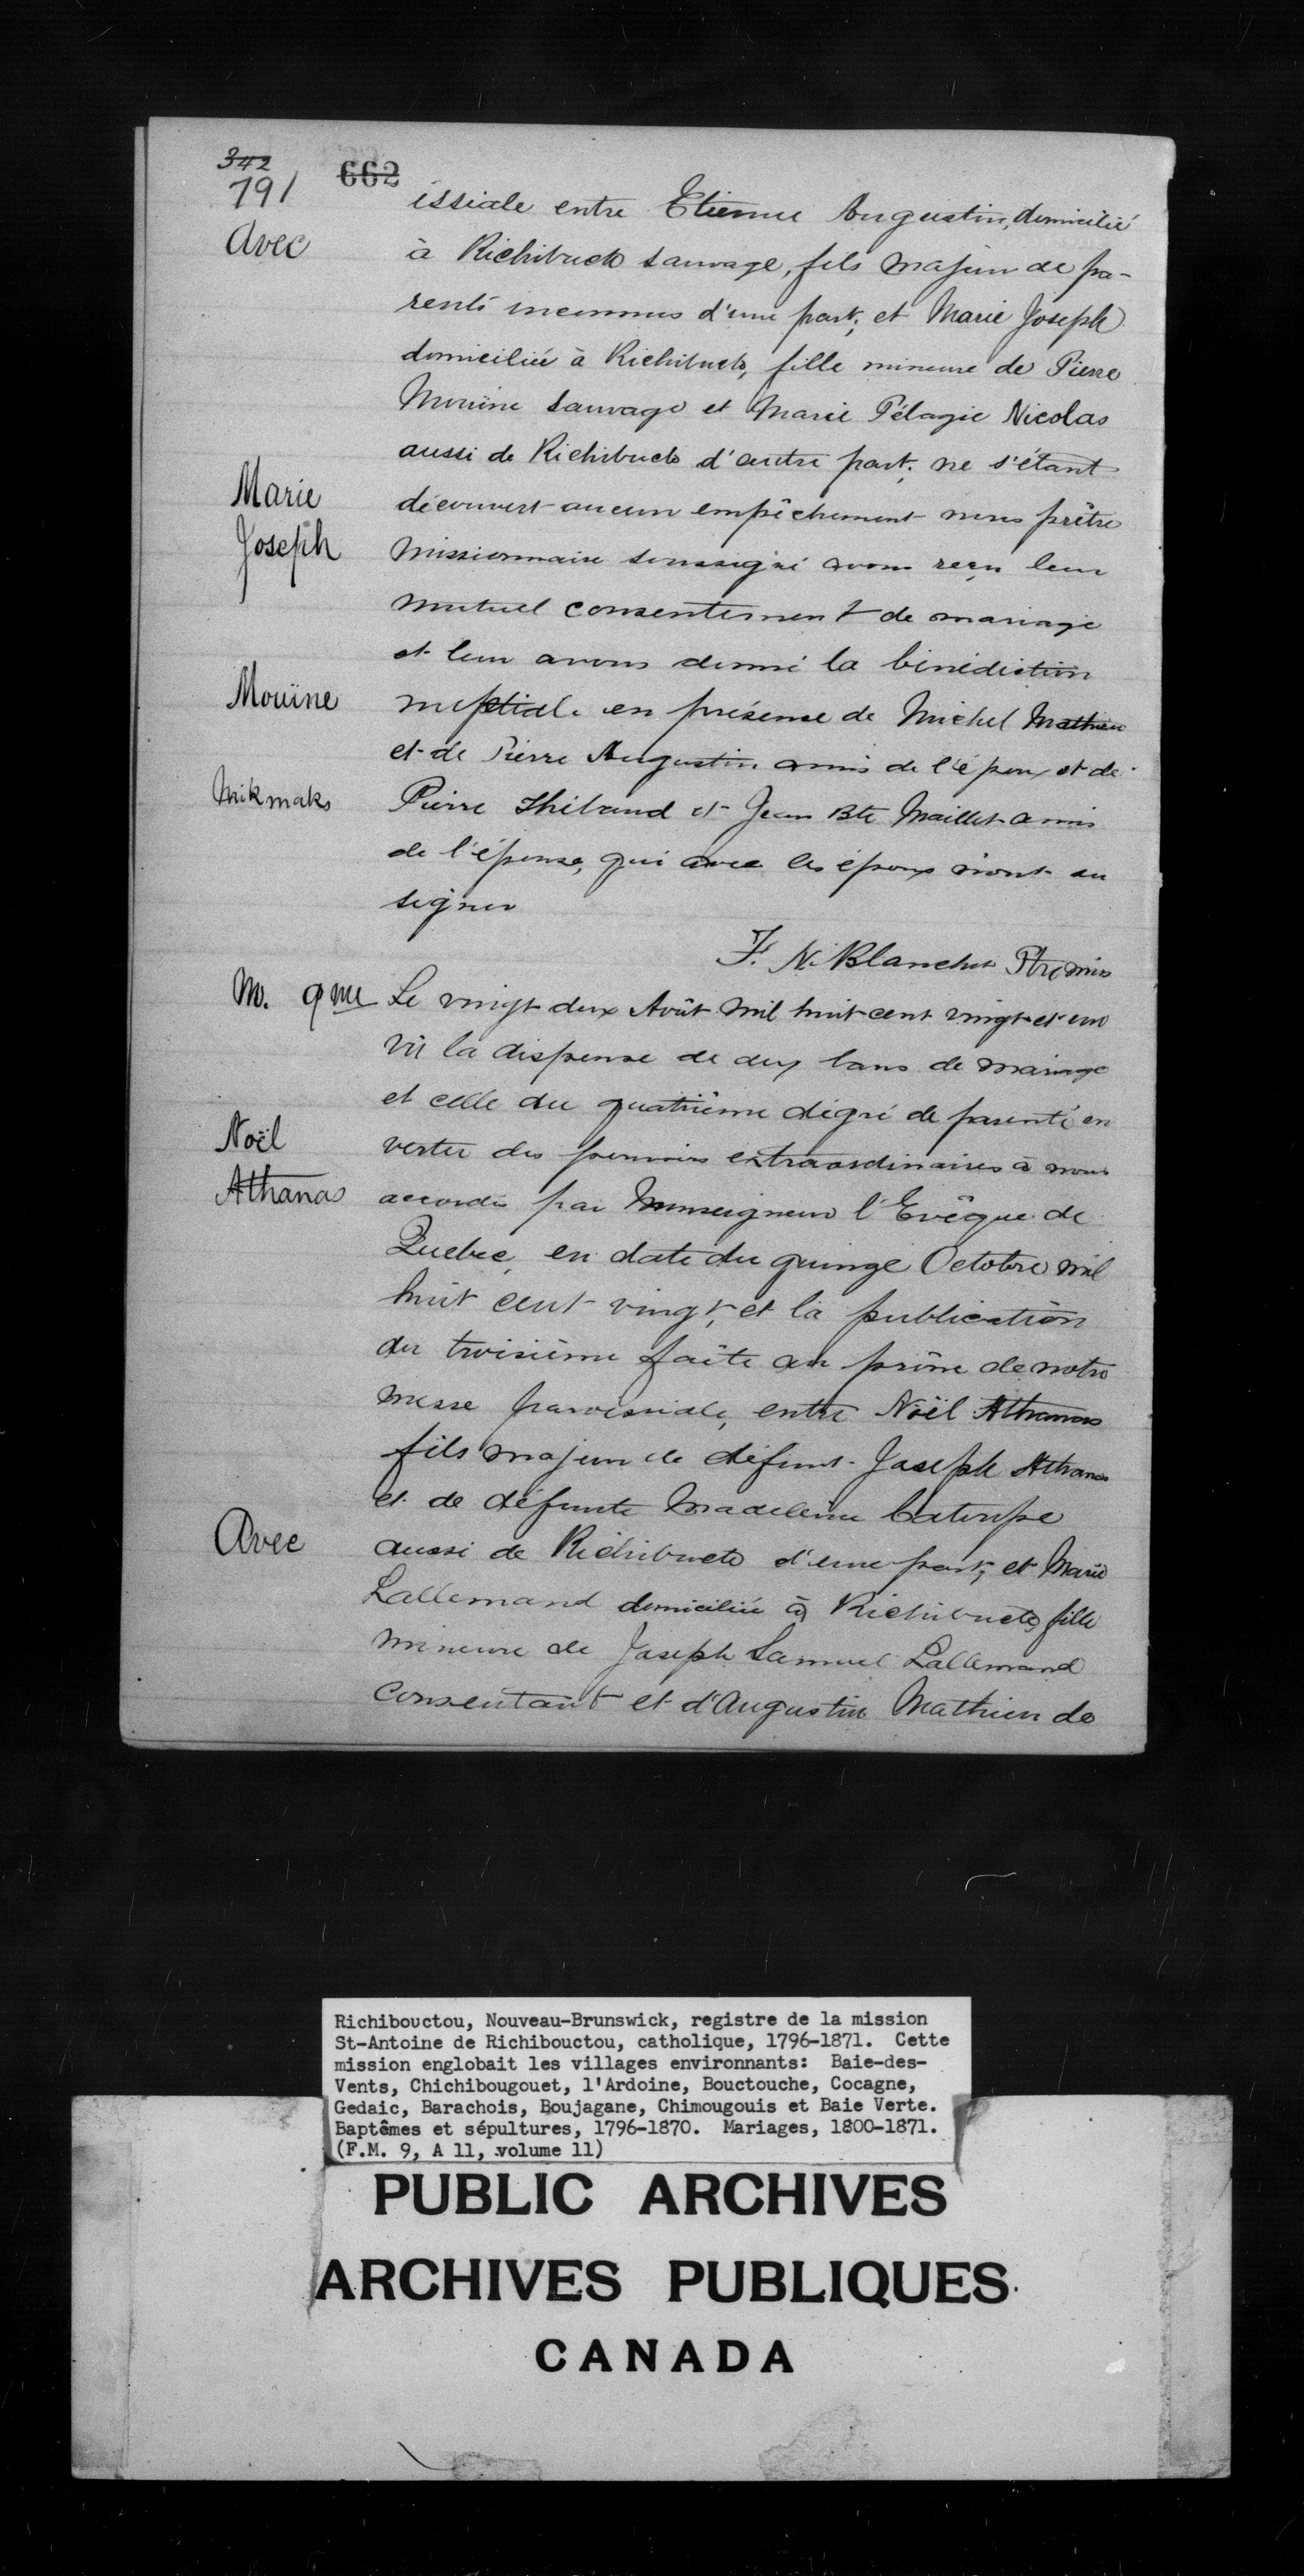 342
791 662
issiale entre Etienne Augustin, domicilié
Avec
à Richibucto sauvage, fils majeur de pa-
rents inconnus d'une part; et Marie Joseph
domiciliée à Richibucto, fille mineure de Pierre
Mouïne sauvage et Marie Pélagie Nicolas
aussi de Richibucto d'autre part; ne s'étant
Marie
découvert aucun empêchement nous prêtre
Joseph
missionnaire soussigné avons reçu leur
mutuel consentement de mariage
et leur avons donné la bénédiction
Mouïne
nuptiale en présence de Michel Mathieu
et de Pierre Augustin amis de l'époux et de
Mikmaks
Pierre Thibaud et Jean Bte Maillet amis
de l'épouse, qui avec les époux n'ont su
signer
F. N. Blanchet Ptre mis
M. 9me Le vingt deux Août mil huit cent vingt et un
vû la dispense de deux bans de mariage
et celle du quatrième dégré de parenté en
Noël
vertu des pouvoirs extraordinaires à nous
Athanas
accordés par Monseigneur l'Evêque de
Quebec, en date du quinze Octobre mil
huit cent vingt, et la publication
du troisième faite au prône de notre
messe paroissiale, entre Noël Athanas
fils majeur de défunt Joseph Athanas
et de défunte Madeleine
Avec
aussi de Richibucto d'une part; et Marie
Lallemand domiciliée à Richibucto, fille
mineure de Joseph Samuel Lallemand
consentant et d'Augustin Mathieu de
Richibouctou, Nouveau-Brunswick, registre de la mission
St-Antoine de Richibouctou, catholique, 1796-1871. Cette
mission englobait les villages environnants: Baie-des-
Vents, Chichibougouet, l'Ardoine, Bouctouche, Cocagne,
Gedaic, Barachois, Boujagane, Chimougouis et Baie Verte.
Baptêmes et sépultures, 1796-1870. Mariages, 1800-1871.
(F.M. 9, A 11, volume 11)
PUBLIC ARCHIVES
ARCHIVES PUBLIQUES
CANADA